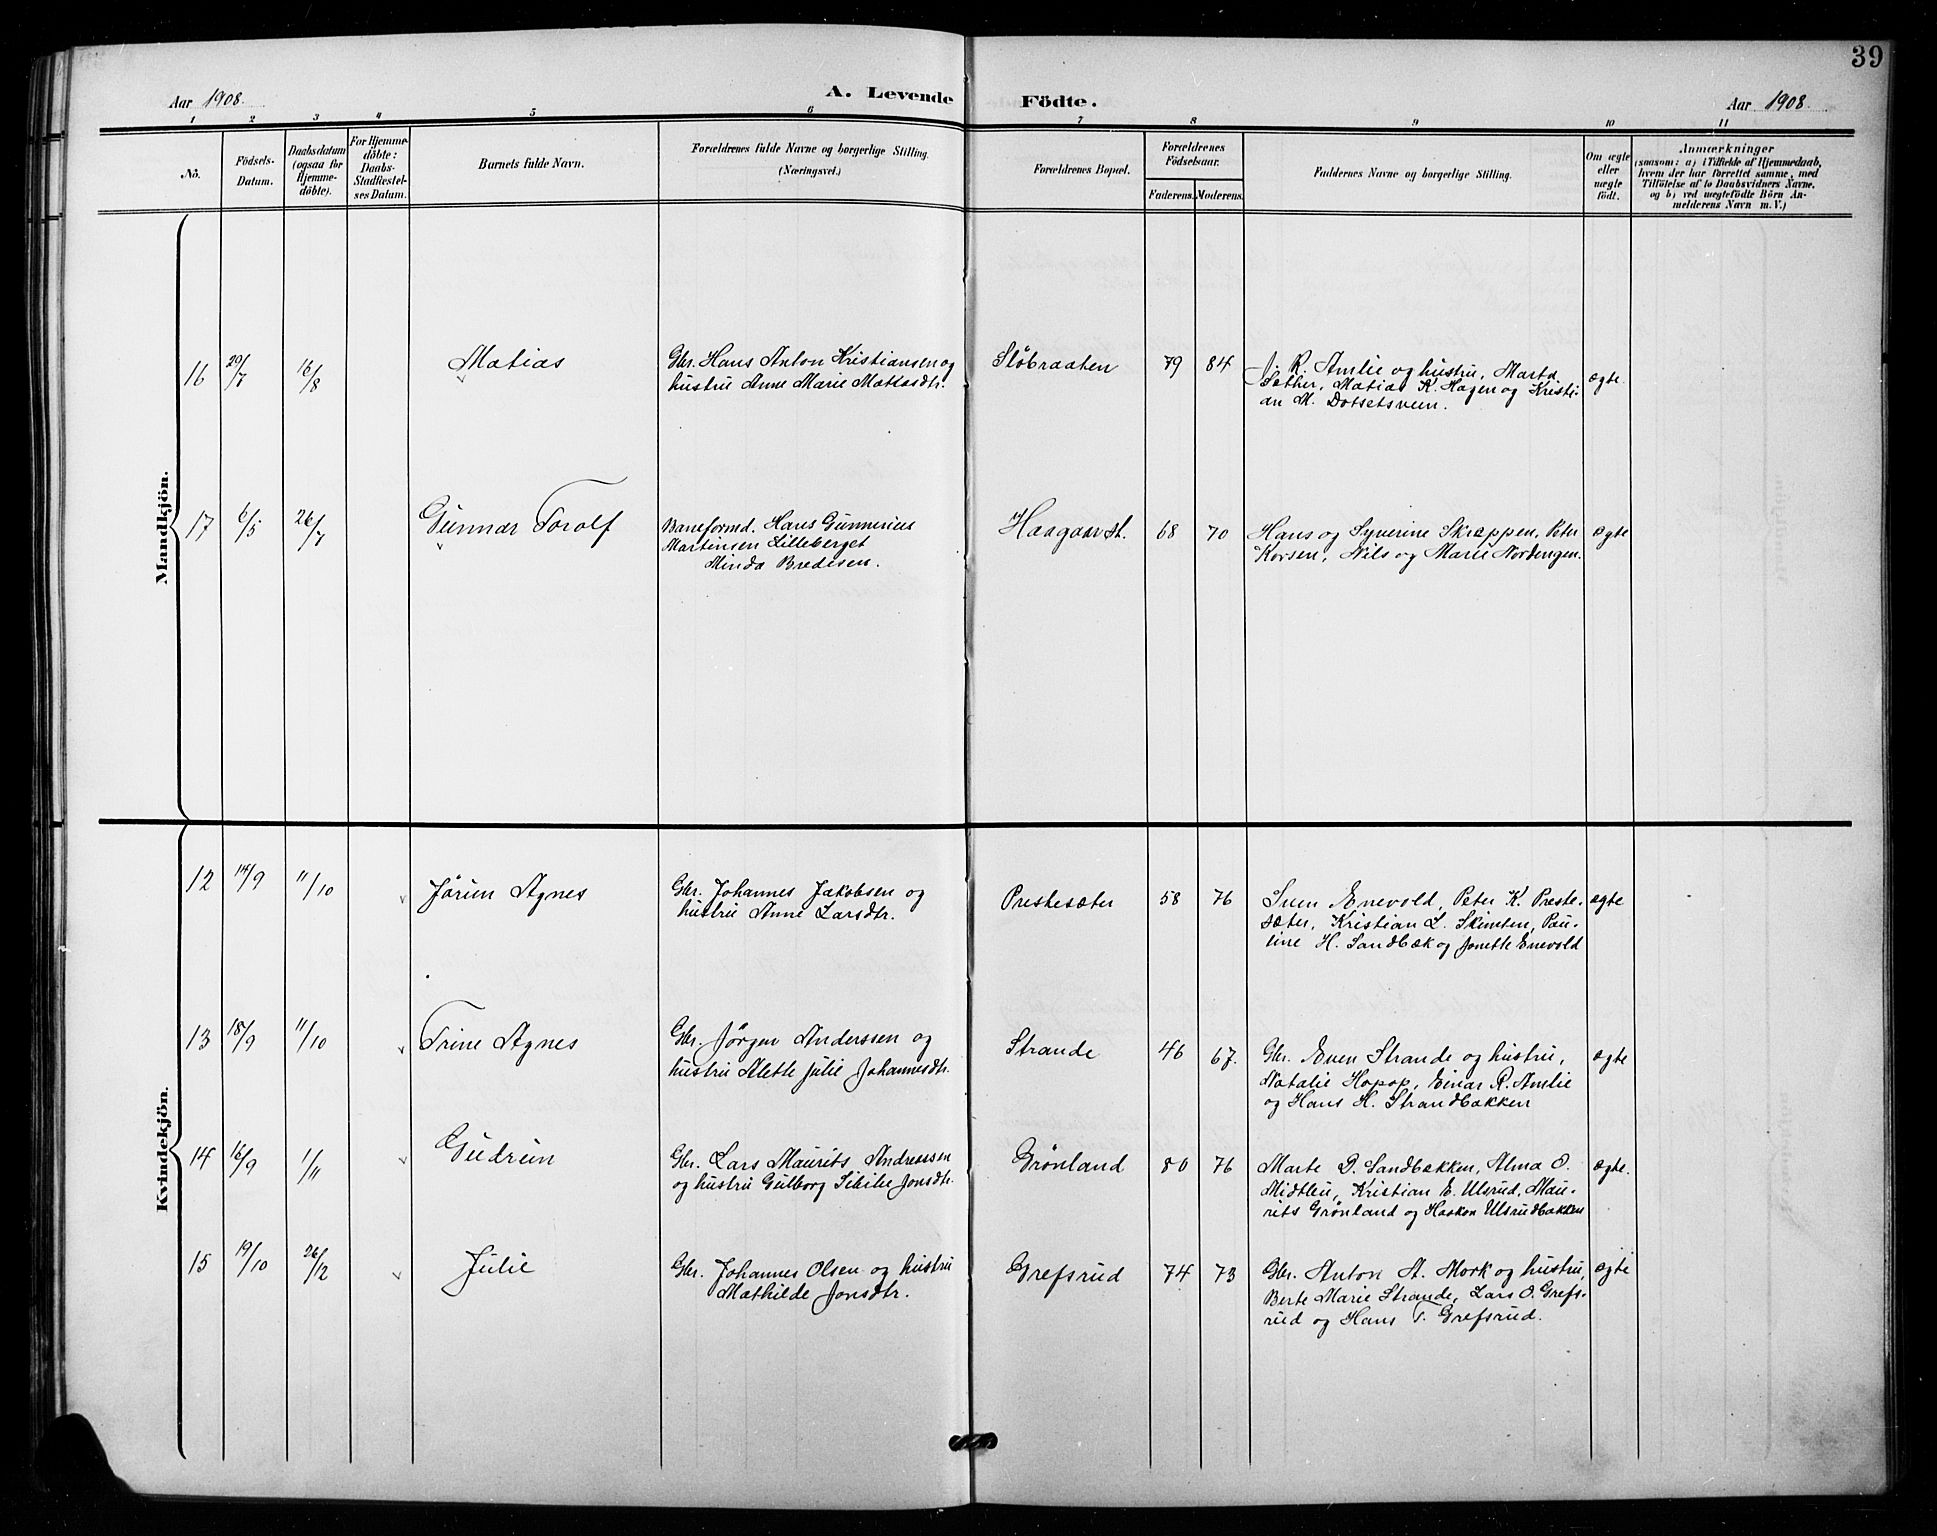 39
Aar 1908.
A. Levende Födte.
Aar 1908.
1 2 3 4 5 6 7 8 9 10 11
No.
Födsels-
Datum.
Daabsdatum
(ogsaa for
Hjemme-
döbte).
For Hjemme-
döbte:
Daabs-
Stadfæstel-
ses Datum.
Barnets fulde Navn.
Forældrenes fulde Navne og borgerlige Stilling.
(Næringsvei.)
Forældrenes Bopæl.
Forældrenes
Födselsaar.
Faderens. Moderens.
Faddernes Navne og borgerlige Stilling.
Om ægte
eller
uægte
födt.
Anmærkninger
(saasom: a) i Tilfælde af Hjemmedaab,
hvem der har forrettet samme, med
Tilföielse af to Daabsvidners Navne,
og b) ved uægtefödte Börn An-
melderens Navn m. V.)
Mandkjön.
16 29/7 16/8 Matias
Gbr. Hans Anton Kristiansen og
hustru Anne Marie Matiasdtr.
Slöbraaten 79 84
J. R. Amlie og hustru, Marta
Sether, Matias K. Hagen og Kristi-
an M. Dotsetsveen.
ægte.
17 6/5 26/7 Gunnar Torolf
Baneformd. Hans Gunnerius
Martinsen Lilleberget
Minda Bredesen.
Haagaar st. 68 70
Hans og Synerine Skrappen, Peter
Korsen, Nils og Marie Nordengen.
ægte
Kvindekjön.
12 14/9 11/10 Jörun Agnes
Gbr. Johannes Jakobsen og
hustru Anne Larsdtr.
Prestesæter 58 76
Sven Enevold, Peter K. Preste-
sæter, Kristian L. Skinsten, Pau-
line H. Sandbæk og Jonette Enevold
ægte
13 18/9 11/10 Trine Agnes
Gbr. Jörgen Anderssen og
hustru Alette Julie Johannesdtr.
Strande 46 67.
Gbr. Even Strande og hustru,
Natalie Hopop, Einar R. Amlie
og Hans H. Strandbakken
ægte
14 16/9 1/11 Gudrun
Gbr. Lars Maurits Andreassen
og hustru Gulborg Sibilie Jonsdtr.
Grönland 80 76
Marte D. Sandbakken, Alma O.
Midtlei, Kristian E. Ulsrud, Mau-
rits Grönland og Haakon Ulsrudbakken
ægte.
15 19/10 26/12 Julie
Gbr. Johannes Olsen og hustru
Mathilde Jonsdtr.
Grefsrud 74 73
Gbr. Anton A. Mork og hustru,
Berte Marie Strande, Lars O. Grefs-
rud og Hans T. Grefsrud.
ægte